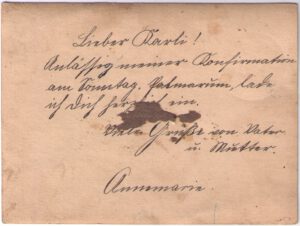 Lieber Karli!
Anlässig meiner Konfirmation
am Sonntag, Palmarum, lade
ich Dich herzlich ein.
Viele Grüße von Vater
u. Mutter.
Annemarie.